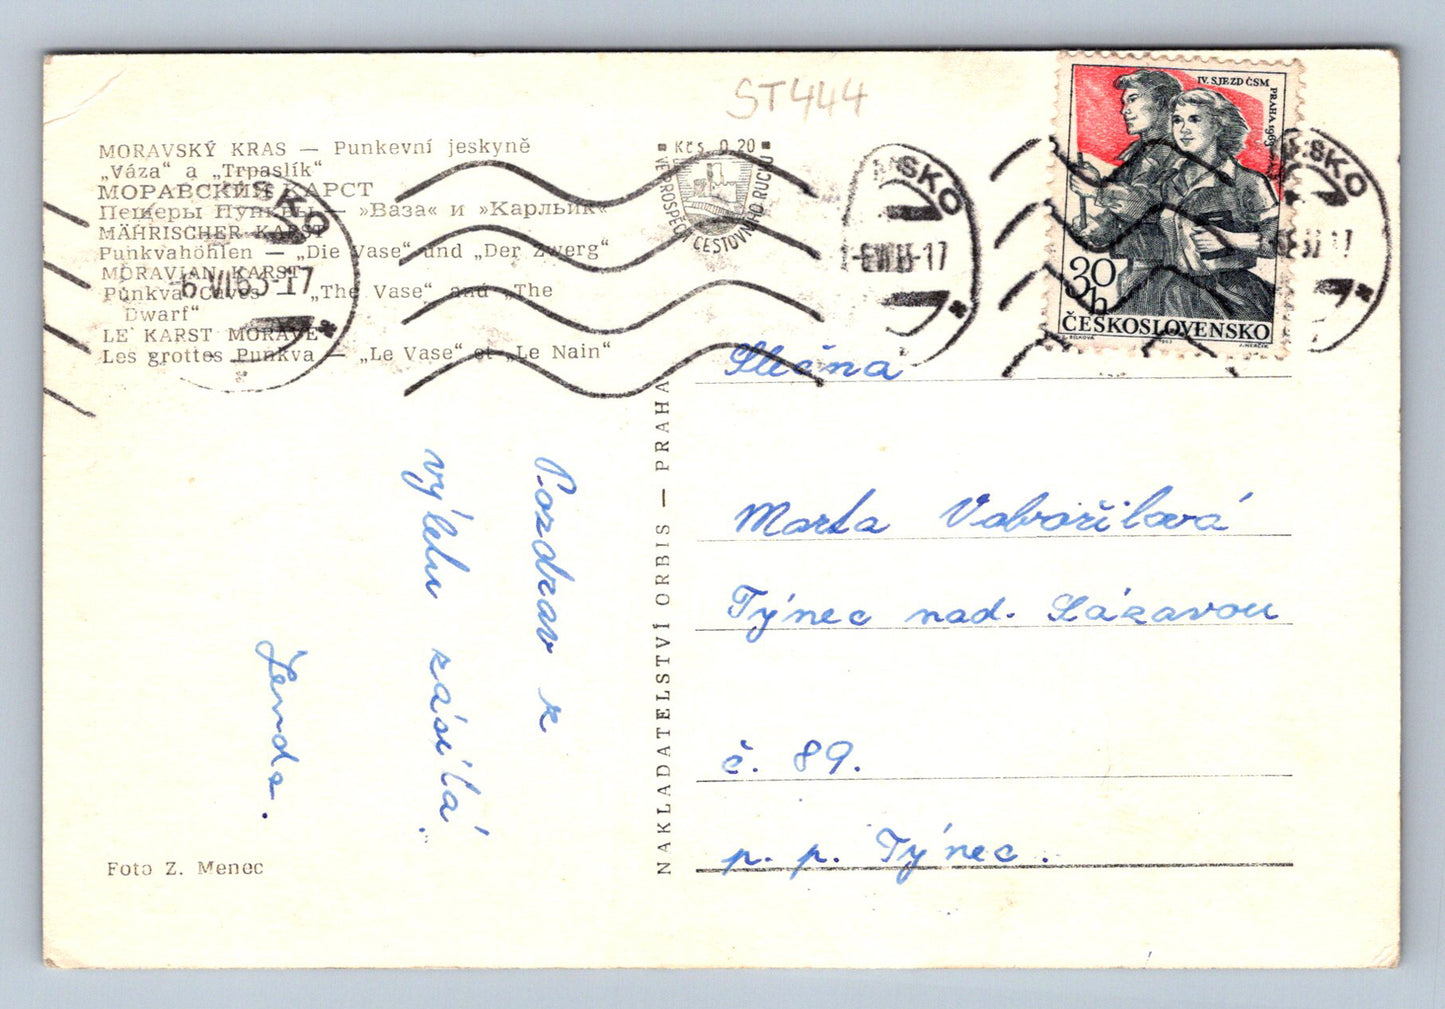 ST444
MORAVSKÝ KRAS — Punkevní jeskyně
„Váza“ a „Trpaslík“
МОРАВСКИЙ КАРСТ
Пещеры Пунквы — »Ваза« и »Карльик«
MÄHRISCHER KARST
Punkvahöhlen — „Die Vase“ und „Der Zwerg“
MORAVIAN KARST
Punkva Caves — „The Vase“ and „The
Dwarf“
LE KARST MORAVE
Les grottes Punkva — „Le Vase“ et „Le Nain“
Kčs 0,20
VE PROSPĚCH CESTOVNÍHO RUCHU
NSKO
-6.VI.63-17
IV. SJEZD ČSM
PRAHA 1963
30 h
ČESKOSLOVENSKO
Pozdrav z
výletu zasílá
Jenda.
NAKLADATELSTVÍ ORBIS — PRAHA
Slečna
Marta
Týnec nad. Sázavou
č. 89.
p. p. Týnec.
Foto Z. Menec